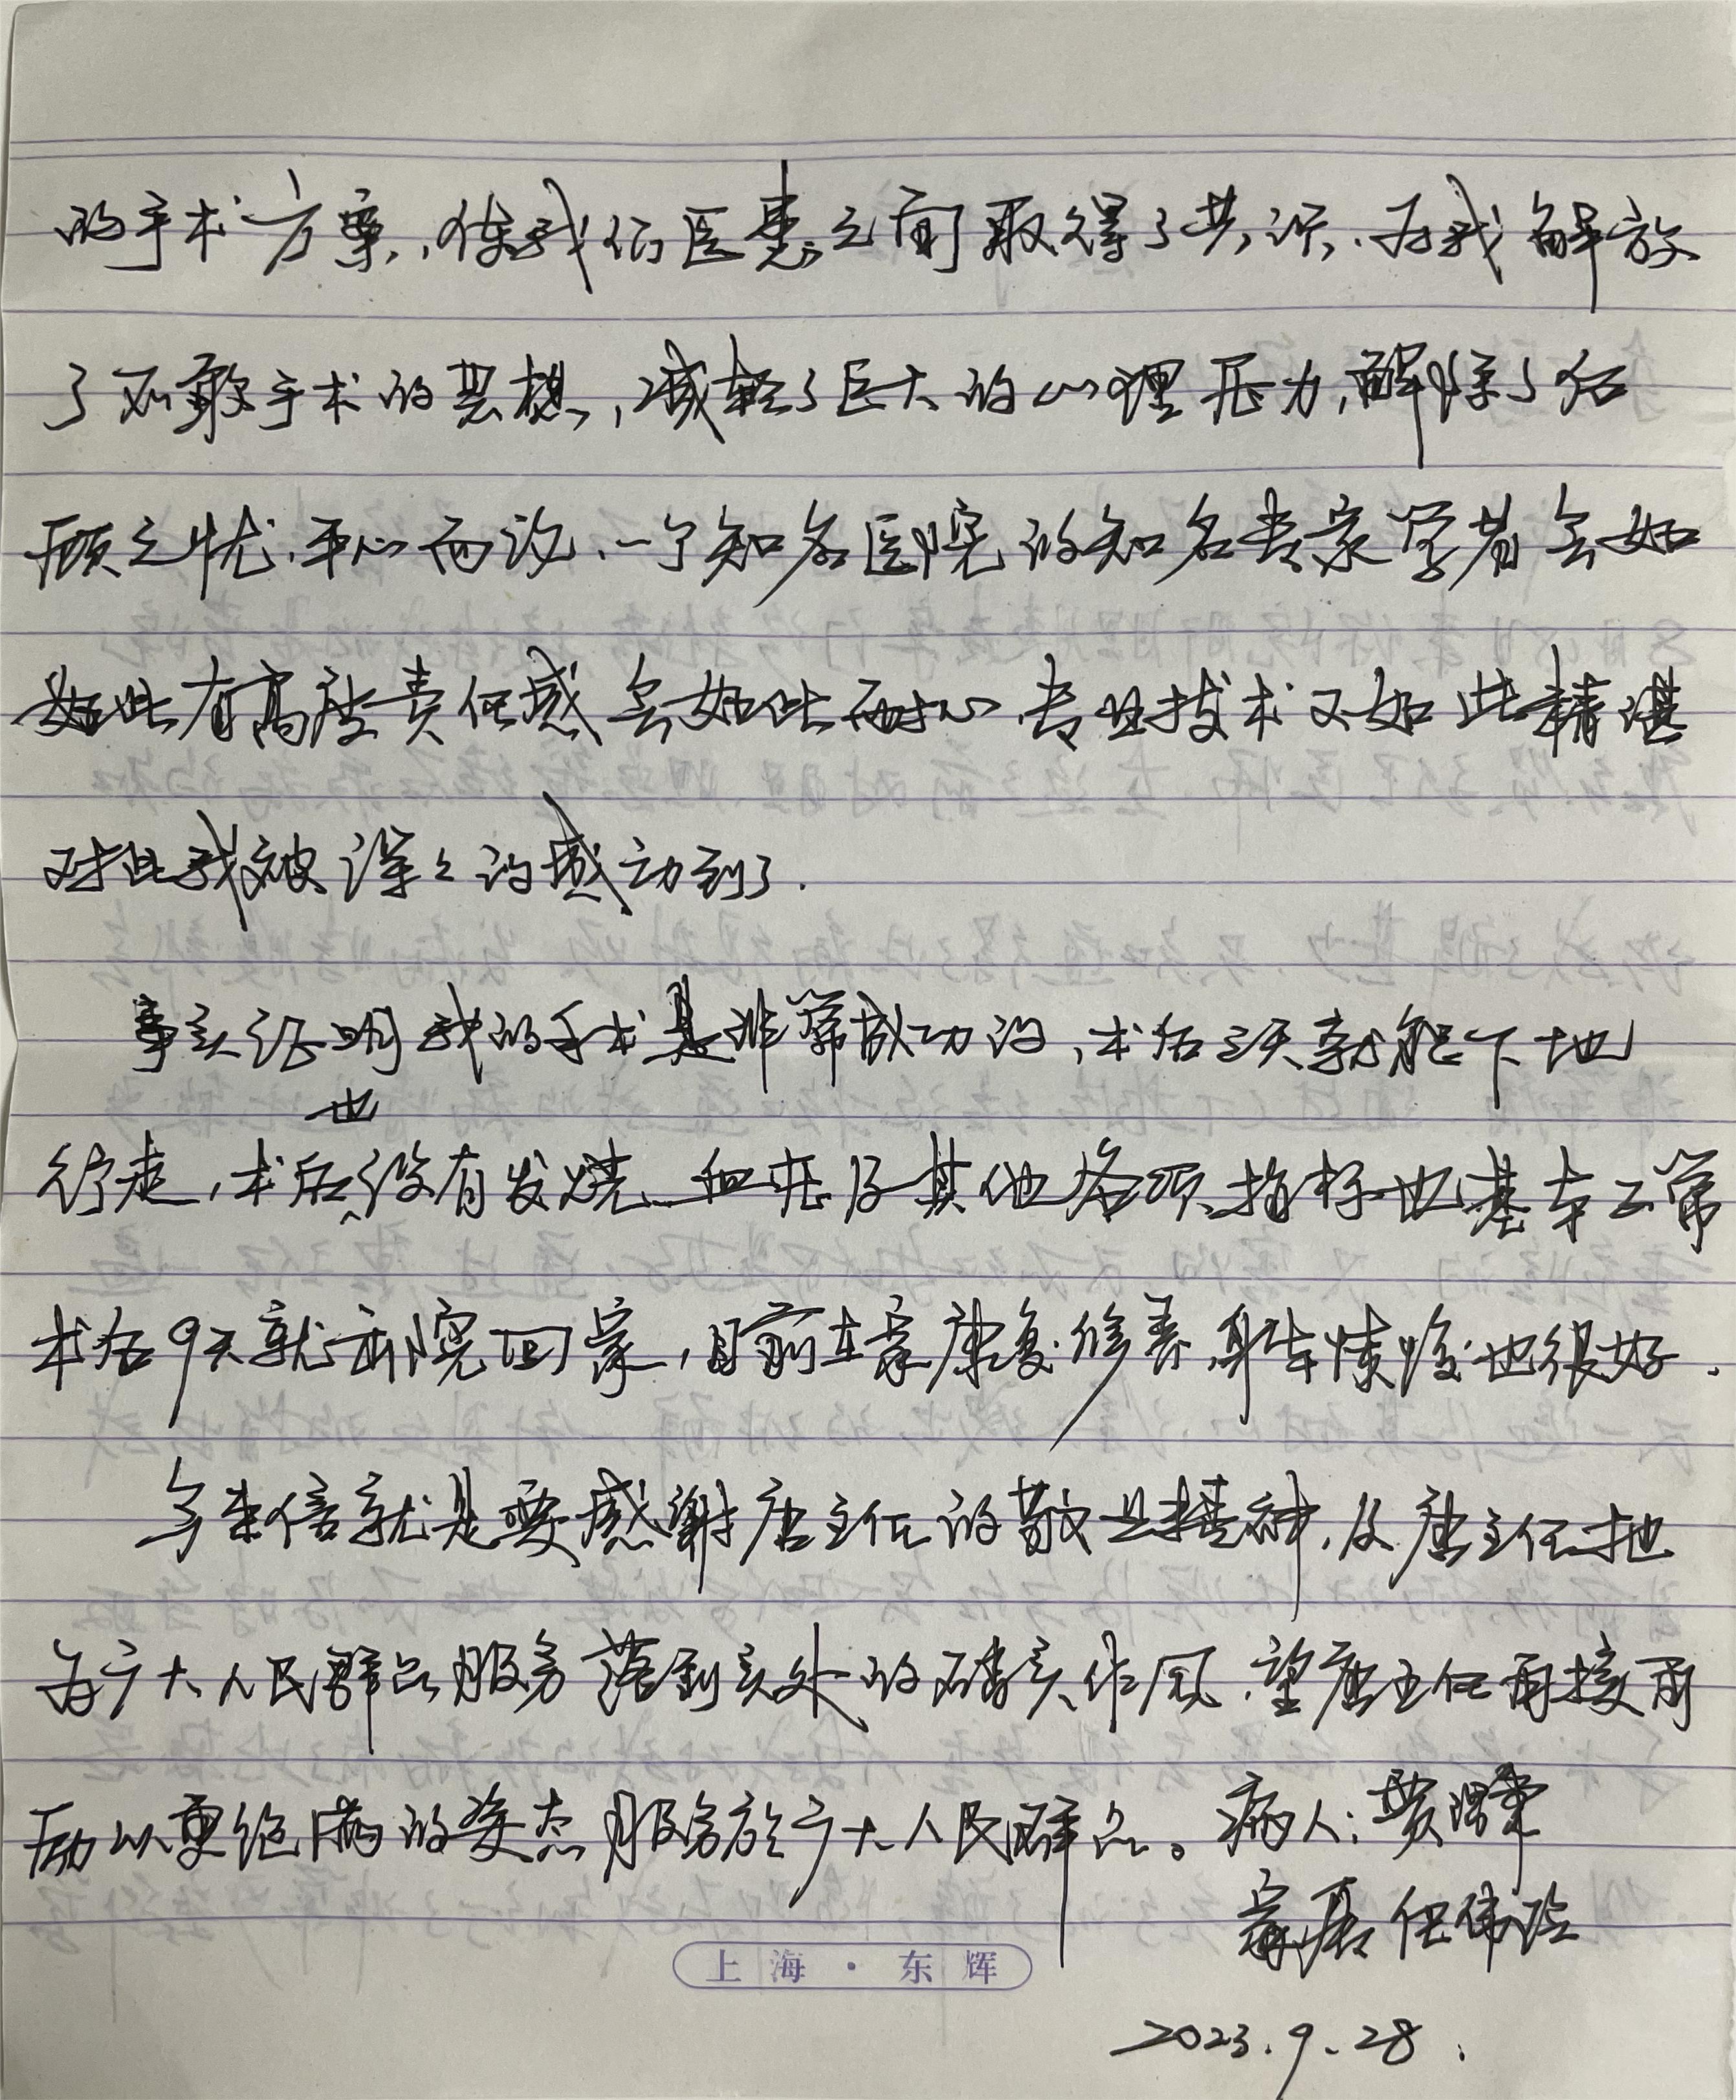 的手术方案,使我们医患之间取得了共识,为我解放
了不敢手术的思想,减轻了巨大的心理压力,解除了后
顾之忧,平心而论,一个知名医院的知名专家学者会如
如此有高度责任感会如此耐心,专业技术又如此精湛
对此我被深々的感动到了.
事实证明我的手术是非常成功的,术后三天就能下地
行走,术后也没有发烧、血压及其他各项指标也基本正常
术后9天就出院回家,目前在家康复修养,身体恢复也很好.
今来信就是要感谢唐主任的敬业精神,及唐主任把
为广大人民群众服务落到实处的踏实作风,望唐主任再接再
励以更饱满的姿态服务於广大人民群众。病人:
家属 任伟
上海·东辉
2023.9.28.